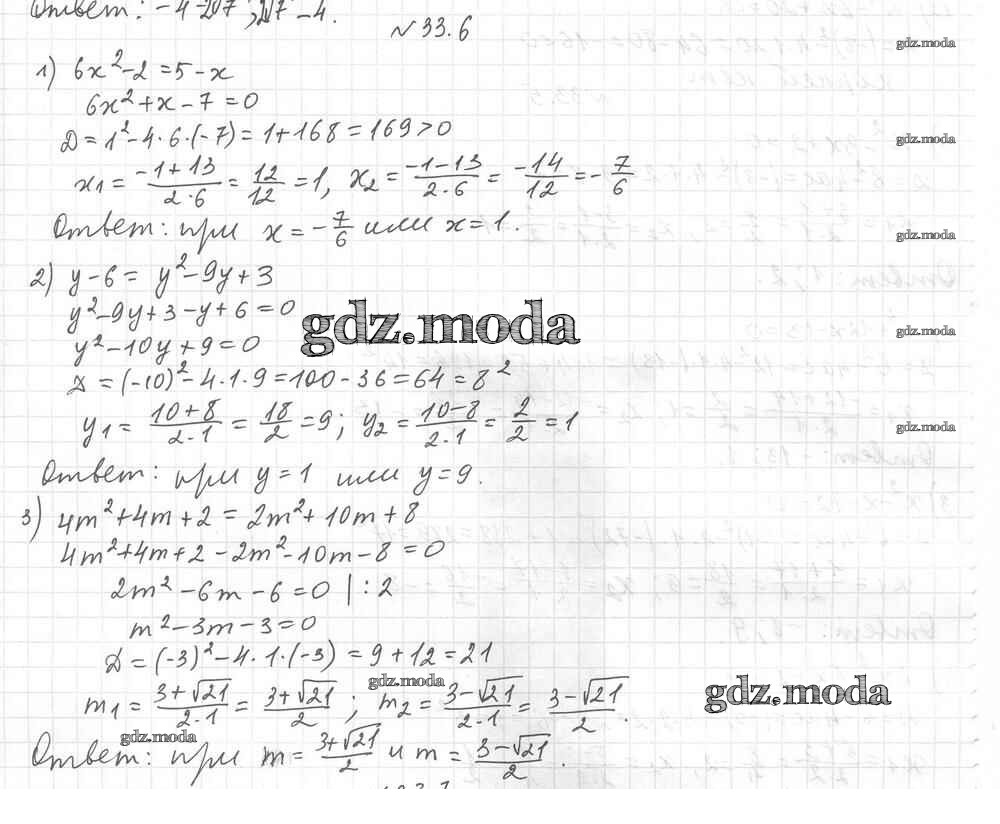 Ответ: -4-2√7; 2√7-4.
№33.6
gdz.moda
1) 6x²-2=5-x
6x²+x-7=0
Д=1²-4·6·(-7)=1+168=169>0
gdz.moda
x₁= (-1+13)/(2·6) = 12/12 =1, x₂= (-1-13)/(2·6) = -14/12 = -7/6
Ответ: при x= -7/6 или x=1.
gdz.moda
2) y-6= y²-9y+3
y²-9y+3-y+6=0
gdz.moda
gdz.moda
y²-10y+9=0
Д=(-10)²-4·1·9=100-36=64=8²
y₁= (10+8)/(2·1) = 18/2 =9; y₂= (10-8)/(2·1) = 2/2 =1
gdz.moda
Ответ: при y=1 или y=9.
3) 4m²+4m+2=2m²+10m+8
4m²+4m+2-2m²-10m-8=0
2m²-6m-6=0 |:2
m²-3m-3=0
Д=(-3)²-4·1·(-3)=9+12=21
gdz.moda
gdz.moda
m₁= (3+√21)/(2·1) = (3+√21)/2; m₂= (3-√21)/(2·1) = (3-√21)/2.
gdz.moda
Ответ: при m= (3+√21)/2 и m= (3-√21)/2.